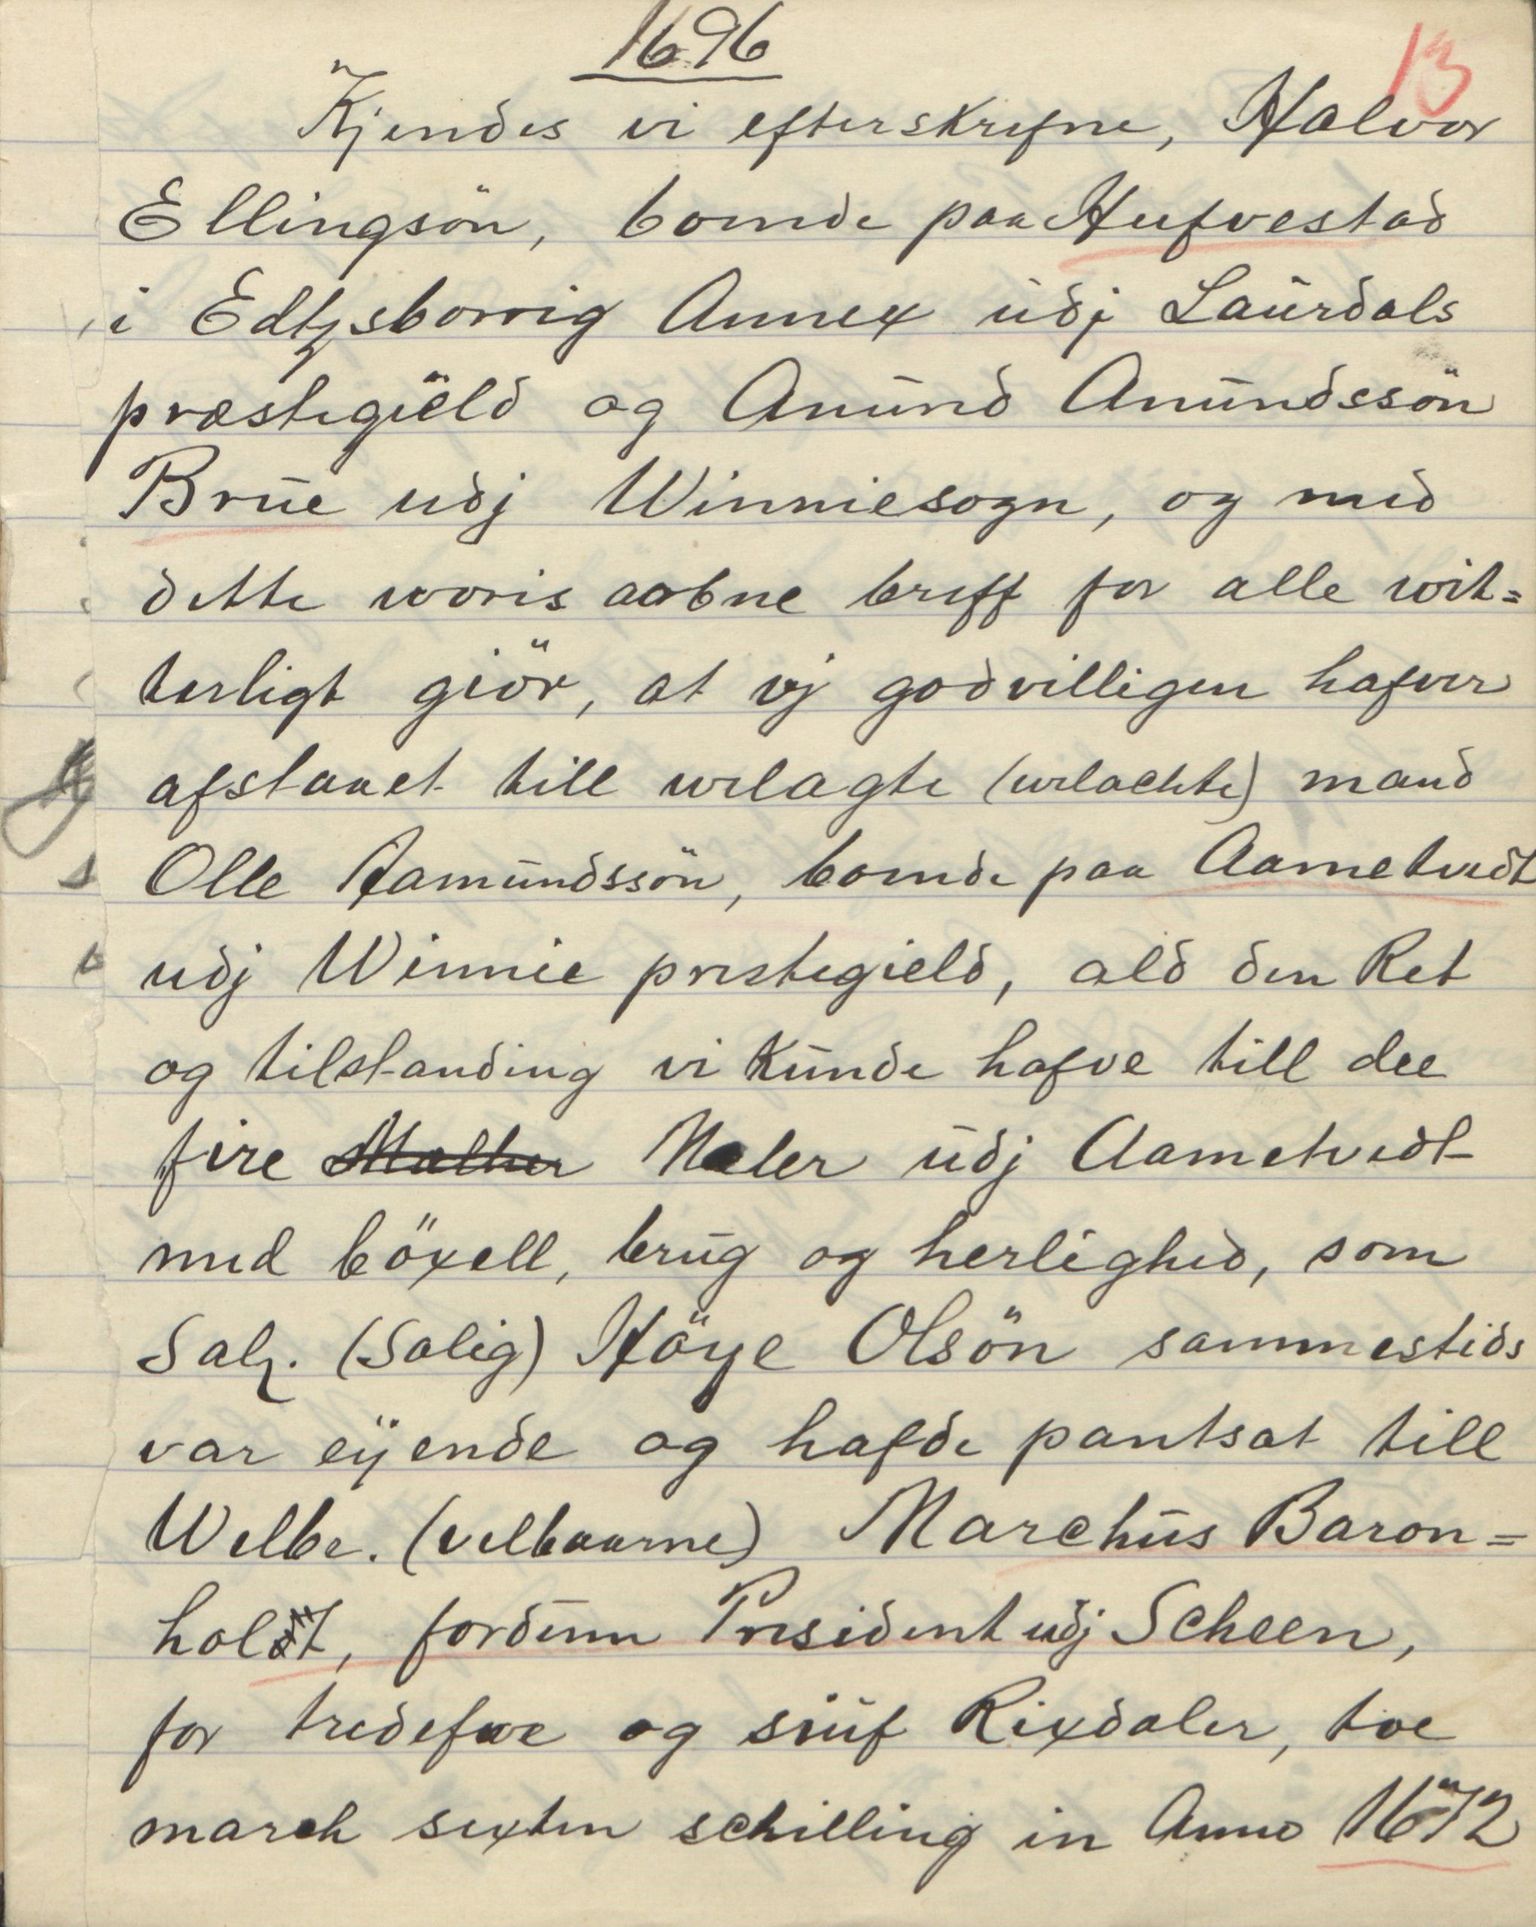 1696
13
Kjendes vi efterskrefne, Halvor
Ellingsön, boende paa Hufvestad
i Edtzsborrig Annex udj Laurdals
præstegield og Anund Anundssön
Brue udj Winniesogn, og med
dette woris aabne breff for alle wit=
terligt giör, at vj godvilligen hafver
afstaaet till velagte (velachte) mand
Olle Aamundssön, boende paa Aametvedt
udj Winnie prestegield, ald den Ret
og tilstanding vi kunde hafve till dee
fire Malher Maler udj Aametvedt
med böxell, brug og herlighed, som
Salz. (Salig) Höye Olsön sammestids
var eÿende og hafde pantsat till
Welbe. (velbaarne) Marchus Baron=
holdt, fordum President udj Scheen,
for tredefwe og siuf Rixdaler, toe
march sexten schilling in Anno 1672